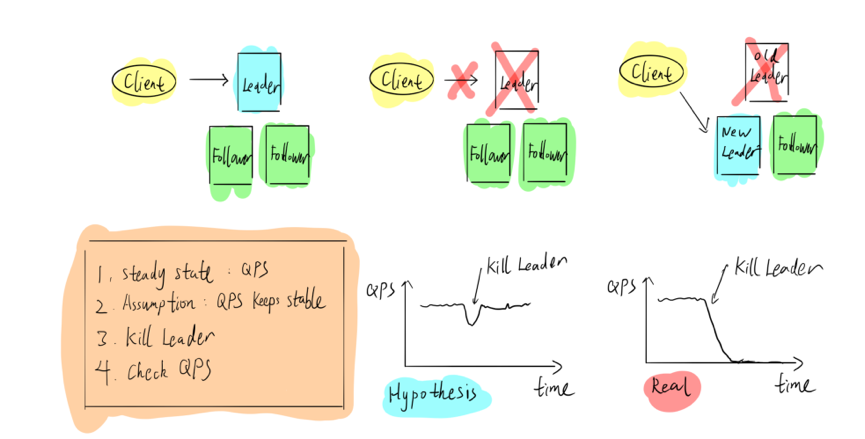 Client
Leader
Follower
Follower
Client
Leader
Follower
Follower
Client
Old
Leader
New
Leader
Follower
1. Steady state : QPS
2. Assumption : QPS keeps stable
3. Kill Leader
4. Check QPS
QPS
Kill Leader
Hypothesis
time
QPS
Kill Leader
Real
time